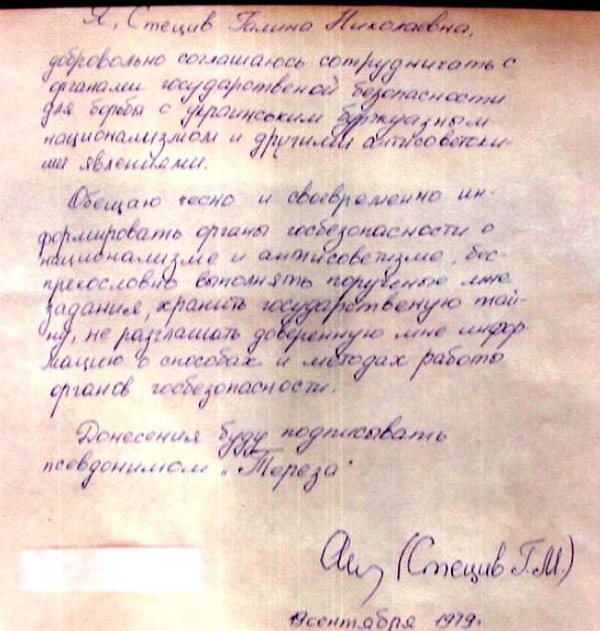 Я, Стецив Галина Николаевна,
добровольно соглашаюсь сотрудничать с
органами государственой безопасности
для борьбы с украинським буржуазным
национализмом и другими антисоветски-
ми явлениями.
Обещаю чесно и своевременно ин-
формировать органы госбезопасности о
национализме и антисоветизме, бес-
прекословно выполнять порученые мне
задания, хранить государственую тай-
ну, не разглашать доверенную мне инфор-
мацию о способах и методах работы
органов госбезопасности.
Донесения буду подписывать
псевдонимом „Тереза"
(Стецив Г.М.)
сентября 1979г.